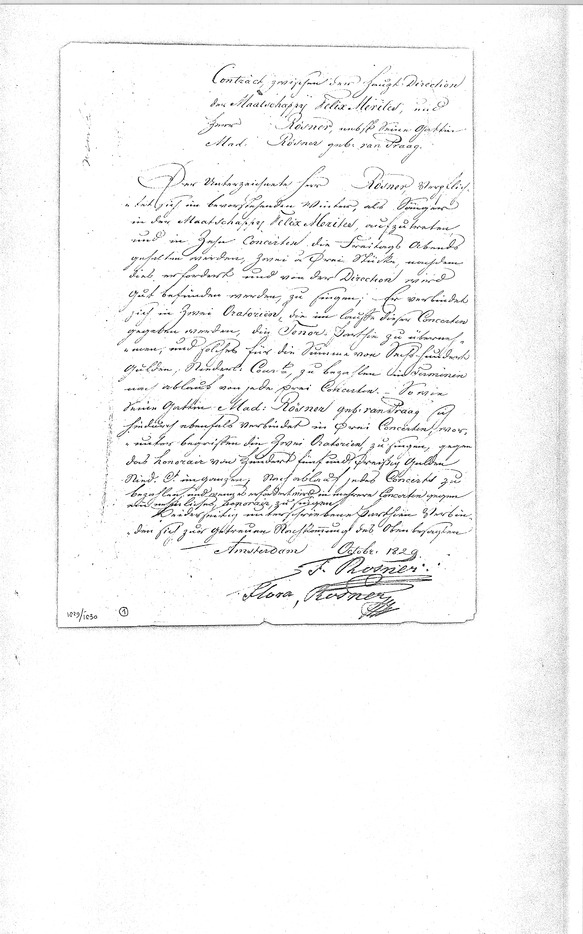 Contract zwischen der Haupt-Direction
der Maatschappy Felix Meritis, und
Herr Rösner, nebst Seine Gattin
Mad. Rösner geb: van Praag.
Der Unterzeichnete Herr Rösner verpflich-
-tet sich im bevorstehenden Winter, als Sänger
in der Maatschappy Felix Meritis, aufzutreten,
und in Zehn Concerten die Freitags Abends
gehalten werden, zwei a drei Stücke, nachdem
dies erfordert und von der Direction wird
gut befunden werden, zu singen; Er verbindet
sich in zwei Oratorien, die im laufe dieser Concerten
gegeben werden, die Tenor-Parthie zu überneh-
-men, und solches für die Summe von Sechshundert
Gulden, Niederl: Cour:t, zu bezahlen in Terminen
nach ablauf von jede drei Concerten. – So wie
Seine Gattin Mad: Rösner geb: van Praag sich
hindurch ebenfals verbindet in drei Concerten, wor-
-unter begriffen die zwei Oratorien zu singen, gegen
das honorair von hundert fünf und dreissig Gulden
Nied. Ct. im ganzen; Nach ablauf jedes Concerts zu
bezahlen, und wenn erfordert wird in mehrere Concerten gegen
ein honorair, zu singen
Beiderseitig unterschriebene Parthien verbin-
-den sich zur getreuen Nachkommung des Obenbesagten
Amsterdam Octobr. 1829
F. Rosner.
Flora, Rosner
1829/1830 1